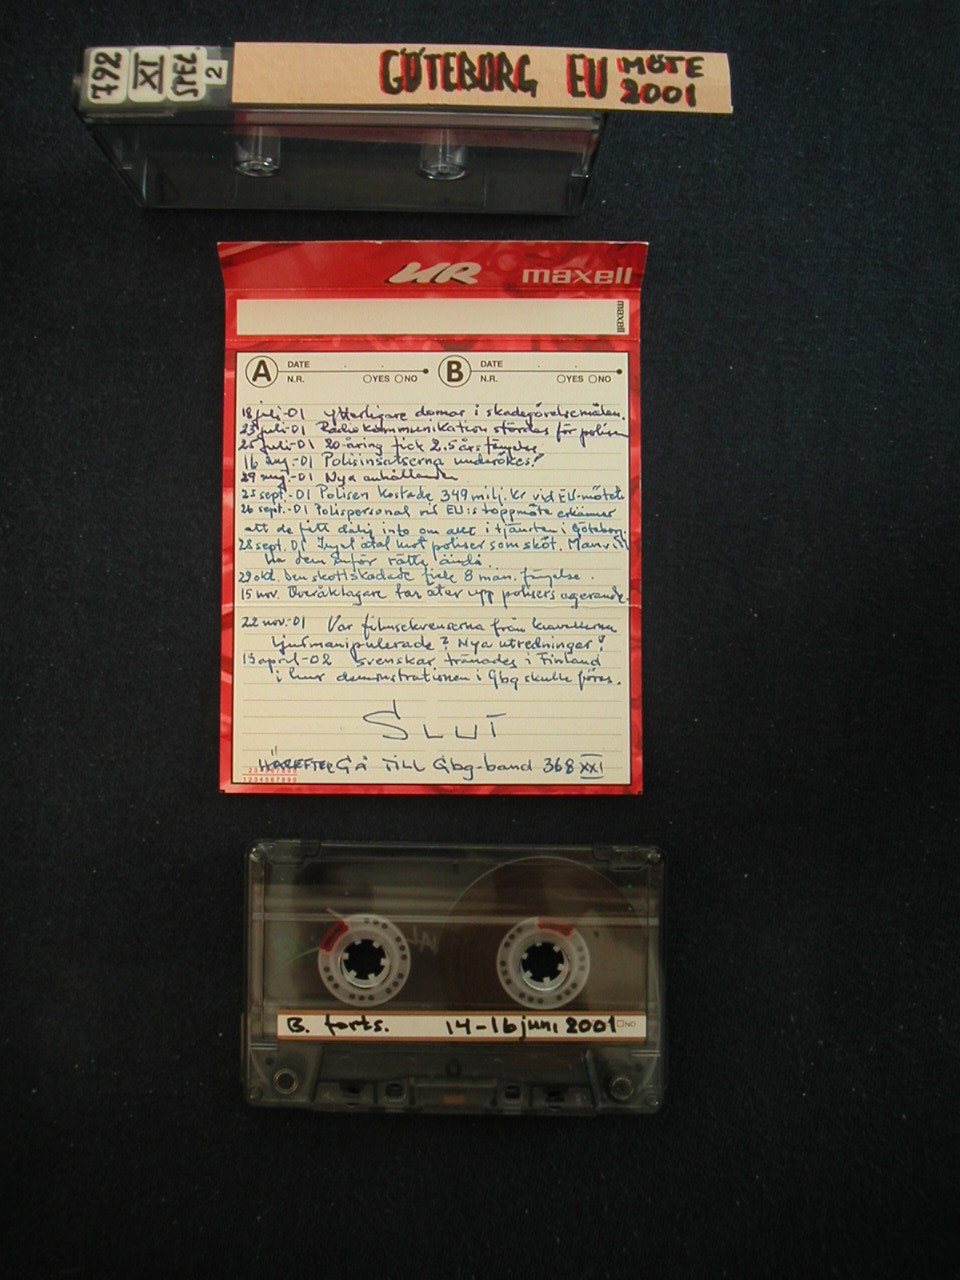 792
XI
SPEL
2
GÖTEBORG EU MÖTE
2001
UR maxell
maxell
A DATE B DATE
N.R. YES NO N.R. YES NO
18 juli-01 Ytterligare domar i skadegörelsemålen.
23 juli-01 Radiokommunikation stördes för polisen
25 juli-01 20-åring fick 2.5 års fängelse
16 aug.-01 Polisinsatserna undersökes?
29 aug.-01 Nya anhållanden
25 sept.-01 Polisen kostade 349 milj. kr vid EU-mötet.
26 sept.-01 Polispersonal vid EU:s toppmöte erkänner
att de fått dålig info om allt i tjänsten i Göteborg.
28 sept. 01 Inget åtal mot poliser som sköt. Man vill
ha dem inför rätta ändå.
29 okt. Den skottskadade fick 8 mån. fängelse.
15 nov. Överåklagare tar åter upp polisers agerande.
22 nov.-01 Var filmsekvenserna från kravallerna
ljudmanipulerade? Nya utredningar?
19 april-02 svenskar tränades i Finland
i hur demonstrationen i Gbg skulle föras.
SLUT
HÄREFTER GÅ TILL Gbg-band 368 XXI
1234567890
B. forts. 14-16 juni 2001 NO